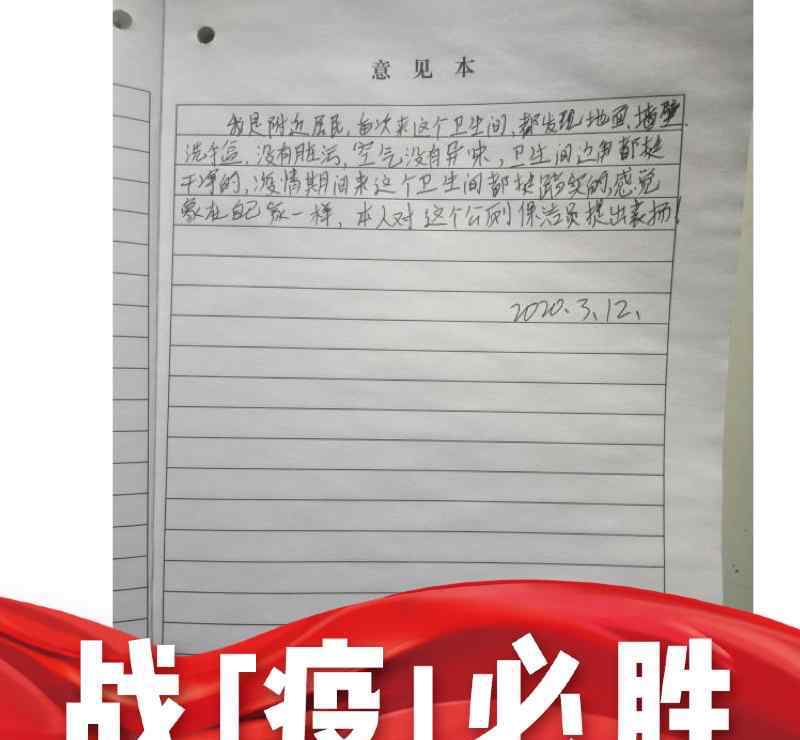 意见本
我是附近居民,每次来这个卫生间,都发现地面、墙壁、
洗手盆,没有脏污,空气没有异味,卫生间边角都挺
干净的,疫情期间来这个卫生间都挺踏实的,感觉
象在自己家一样,本人对这个公厕保洁员提出表扬!
2020.3.12.
战「疫」必胜